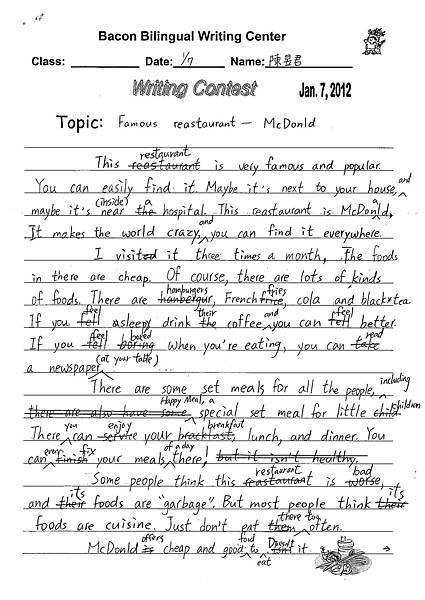 Bacon Bilingual Writing Center
Class: Date: 1/7 Name: 陳昱君
Writing Contest Jan. 7, 2012
Topic: Famous reastaurant — McDonld
restaurant
This reastaurant is very famous and popular.
You can easily find it. Maybe it's next to your house, and
(inside) a
maybe it's near the hospital. This reastaurant is McDonald,
It makes the world crazy, and you can find it everywhere.
I visited it three times a month, The foods
in there are cheap. Of course, there are lots of kinds
hamburgers fries
of foods. There are hanbergur, French frice, cola and black tea.
feel their and feel
If you fell asleepy drink the coffee, you can fell better.
feel bored read
If you fell boring when you're eating, you can take
a newspaper (at your table)
There are some set meals for all the people, including
Happy Meal, a
there are also have some special set meal for little child children
you enjoy breakfast
There can servie your brackfast, lunch, and dinner. You
even fix of a day
can finish your meals there! but it isn't healthy.
restaurant bad
Some people think this reastaurant is worse,
its
and their foods are "garbage". But most people think their its
foods are cuisine. Just don't eat them there too often.
offers food Doesn't
McDonld is cheap and good to eat isn't it.